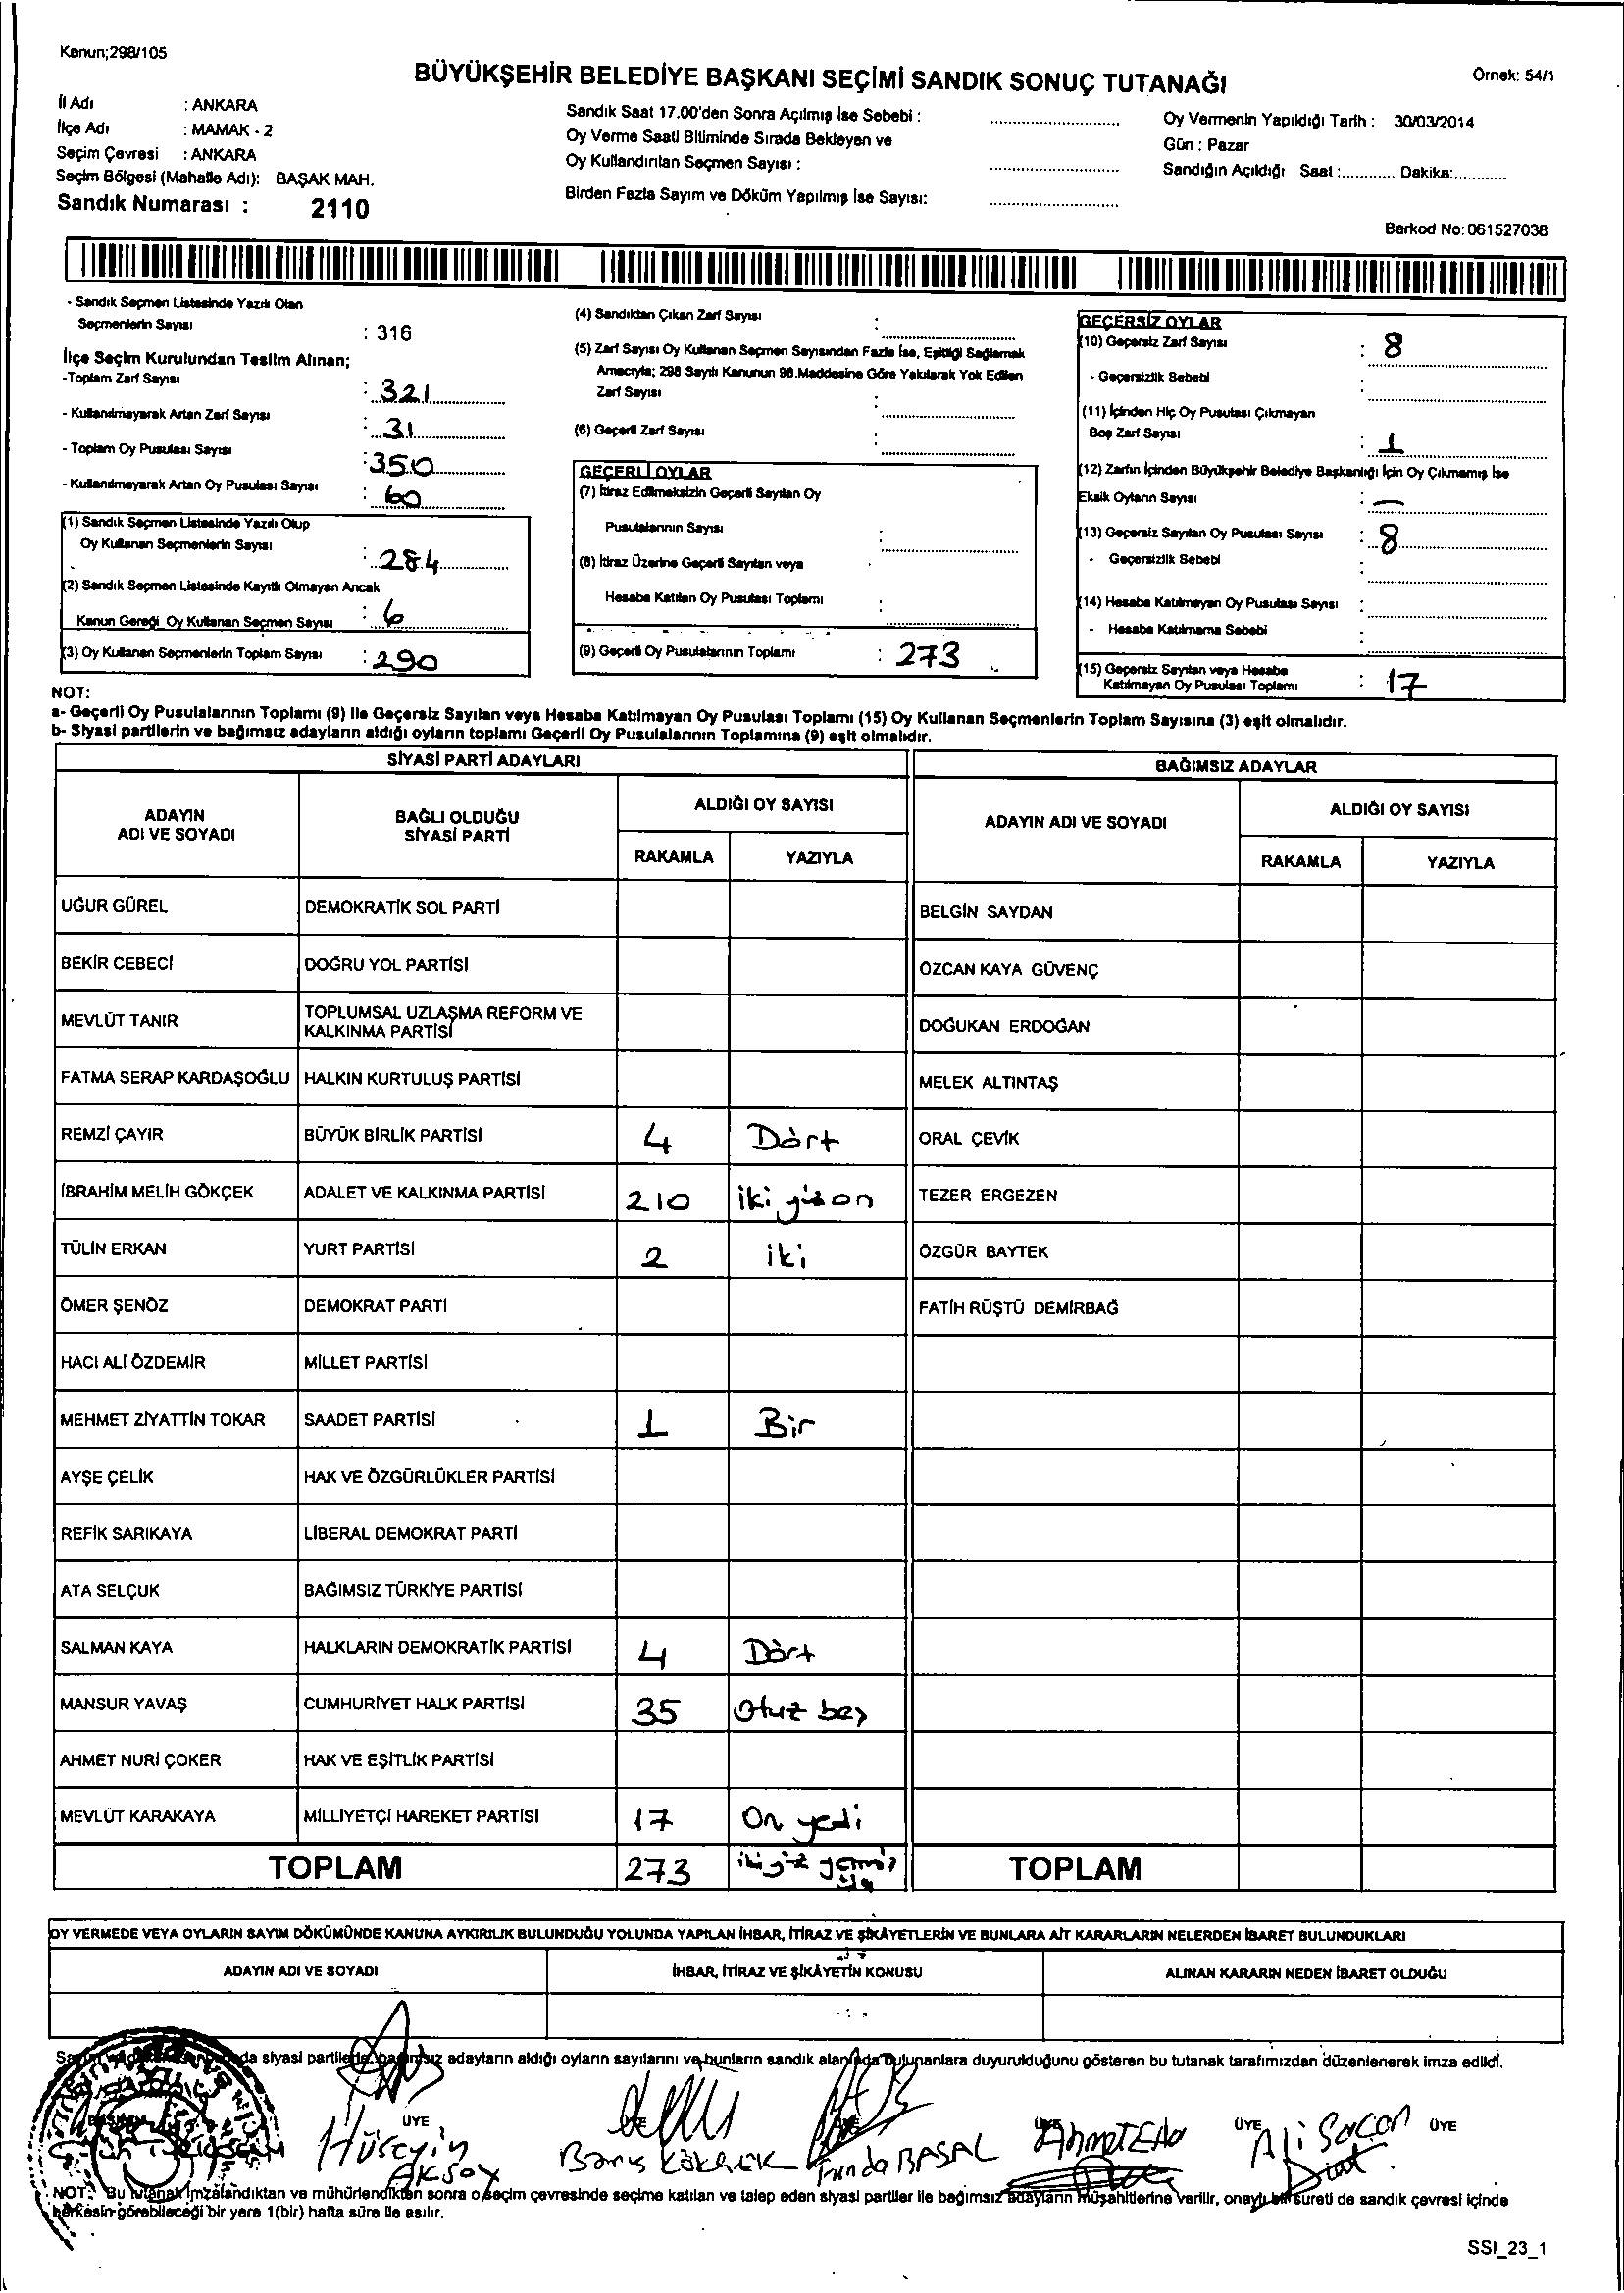 Kanun;298/105
BÜYÜKŞEHİR BELEDİYE BAŞKANI SEÇİMİ SANDIK SONUÇ TUTANAĞI
Örnek: 54/1
İl Adı : ANKARA
İlçe Adı : MAMAK - 2
Seçim Çevresi : ANKARA
Seçim Bölgesi (Mahalle Adı): BAŞAK MAH.
Sandık Numarası : 2110
Sandık Saat 17.00'den Sonra Açılmış İse Sebebi : ..........
Oy Verme Saati Bitiminde Sırada Bekleyen ve
Oy Kullandırılan Seçmen Sayısı : ..........
Birden Fazla Sayım ve Döküm Yapılmış İse Sayısı: ..........
Oy Vermenin Yapıldığı Tarih : 30/03/2014
Gün : Pazar
Sandığın Açıldığı Saat :............ Dakika:............
Barkod No: 061527038
- Sandık Seçmen Listesinde Yazılı Olan
Seçmenlerin Sayısı : 316
İlçe Seçim Kurulundan Teslim Alınan;
-Toplam Zarf Sayısı : 321
- Kullanılmayarak Artan Zarf Sayısı : 31
- Toplam Oy Pusulası Sayısı : 350
- Kullanılmayarak Artan Oy Pusulası Sayısı : 60
(1) Sandık Seçmen Listesinde Yazılı Olup
Oy Kullanan Seçmenlerin Sayısı : 284
(2) Sandık Seçmen Listesinde Kayıtlı Olmayan Ancak
Kanun Gereği Oy Kullanan Seçmen Sayısı : 6
(3) Oy Kullanan Seçmenlerin Toplam Sayısı : 290
(4) Sandıktan Çıkan Zarf Sayısı :
(5) Zarf Sayısı Oy Kullanan Seçmen Sayısından Fazla İse, Eşitliği Sağlamak
Amacıyla; 298 Sayılı Kanunun 98.Maddesine Göre Yakılarak Yok Edilen
Zarf Sayısı :
(6) Geçerli Zarf Sayısı :
GEÇERLİ OYLAR
(7) İtiraz Edilmeksizin Geçerli Sayılan Oy
Pusulalarının Sayısı :
(8) İtiraz Üzerine Geçerli Sayılan veya
Hesaba Katılan Oy Pusulası Toplamı :
(9) Geçerli Oy Pusulalarının Toplamı : 273
GEÇERSİZ OYLAR
(10) Geçersiz Zarf Sayısı : 8
- Geçersizlik Sebebi
(11) İçinden Hiç Oy Pusulası Çıkmayan
Boş Zarf Sayısı : 1
(12) Zarfın İçinden Büyükşehir Belediye Başkanlığı İçin Oy Çıkmamış İse
Eksik Oyların Sayısı : —
(13) Geçersiz Sayılan Oy Pusulası Sayısı : 8
- Geçersizlik Sebebi :
(14) Hesaba Katılmayan Oy Pusulası Sayısı :
- Hesaba Katılmama Sebebi :
(15) Geçersiz Sayılan veya Hesaba
Katılmayan Oy Pusulası Toplamı : 17
NOT:
a- Geçerli Oy Pusulalarının Toplamı (9) ile Geçersiz Sayılan veya Hesaba Katılmayan Oy Pusulası Toplamı (15) Oy Kullanan Seçmenlerin Toplam Sayısına (3) eşit olmalıdır.
b- Siyasi partilerin ve bağımsız adayların aldığı oyların toplamı Geçerli Oy Pusulalarının Toplamına (9) eşit olmalıdır.
SİYASİ PARTİ ADAYLARI
BAĞIMSIZ ADAYLAR
ADAYIN ADI VE SOYADI
BAĞLI OLDUĞU SİYASİ PARTİ
ALDIĞI OY SAYISI
RAKAMLA YAZIYLA
ADAYIN ADI VE SOYADI
ALDIĞI OY SAYISI
RAKAMLA YAZIYLA
UĞUR GÜREL DEMOKRATİK SOL PARTİ BELGİN SAYDAN
BEKİR CEBECİ DOĞRU YOL PARTİSİ ÖZCAN KAYA GÜVENÇ
MEVLÜT TANIR TOPLUMSAL UZLAŞMA REFORM VE KALKINMA PARTİSİ DOĞUKAN ERDOĞAN
FATMA SERAP KARDAŞOĞLU HALKIN KURTULUŞ PARTİSİ MELEK ALTINTAŞ
REMZİ ÇAYIR BÜYÜK BİRLİK PARTİSİ 4 Dört ORAL ÇEVİK
İBRAHİM MELİH GÖKÇEK ADALET VE KALKINMA PARTİSİ 210 iki yüz on TEZER ERGEZEN
TÜLİN ERKAN YURT PARTİSİ 2 iki ÖZGÜR BAYTEK
ÖMER ŞENÖZ DEMOKRAT PARTİ FATİH RÜŞTÜ DEMİRBAĞ
HACI ALİ ÖZDEMİR MİLLET PARTİSİ
MEHMET ZİYATTİN TOKAR SAADET PARTİSİ 1 Bir
AYŞE ÇELİK HAK VE ÖZGÜRLÜKLER PARTİSİ
REFİK SARIKAYA LİBERAL DEMOKRAT PARTİ
ATA SELÇUK BAĞIMSIZ TÜRKİYE PARTİSİ
SALMAN KAYA HALKLARIN DEMOKRATİK PARTİSİ 4 Dört
MANSUR YAVAŞ CUMHURİYET HALK PARTİSİ 35 Otuz beş
AHMET NURİ ÇOKER HAK VE EŞİTLİK PARTİSİ
MEVLÜT KARAKAYA MİLLİYETÇİ HAREKET PARTİSİ 17 On yedi
TOPLAM 273 iki yüz yetmiş üç TOPLAM
OY VERMEDE VEYA OYLARIN SAYIM DÖKÜMÜNDE KANUNA AYKIRILIK BULUNDUĞU YOLUNDA YAPILAN İHBAR, İTİRAZ VE ŞİKÂYETLERİN VE BUNLARA AİT KARARLARIN NELERDEN İBARET BULUNDUKLARI
ADAYIN ADI VE SOYADI İHBAR, İTİRAZ VE ŞİKÂYETİN KONUSU ALINAN KARARIN NEDEN İBARET OLDUĞU
siyasi partilerle, bağımsız adayların aldığı oyların sayılarını ve bunların sandık alanında bulunanlara duyurulduğunu gösteren bu tutanak tarafımızdan düzenlenerek imza edildi.
BAŞKAN ÜYE ÜYE ÜYE ÜYE ÜYE ÜYE
Hüseyin AKSOY Barış Funda BASAL Ahmet Ali
NOT: Bu tutanak imzalandıktan ve mühürlendikten sonra o seçim çevresinde seçime katılan ve talep eden siyasi partiler ile bağımsız adayların müşahitlerine verilir, onaylı bir sureti de sandık çevresi içinde
herkesin görebileceği bir yere 1(bir) hafta süre ile asılır.
SSI_23_1